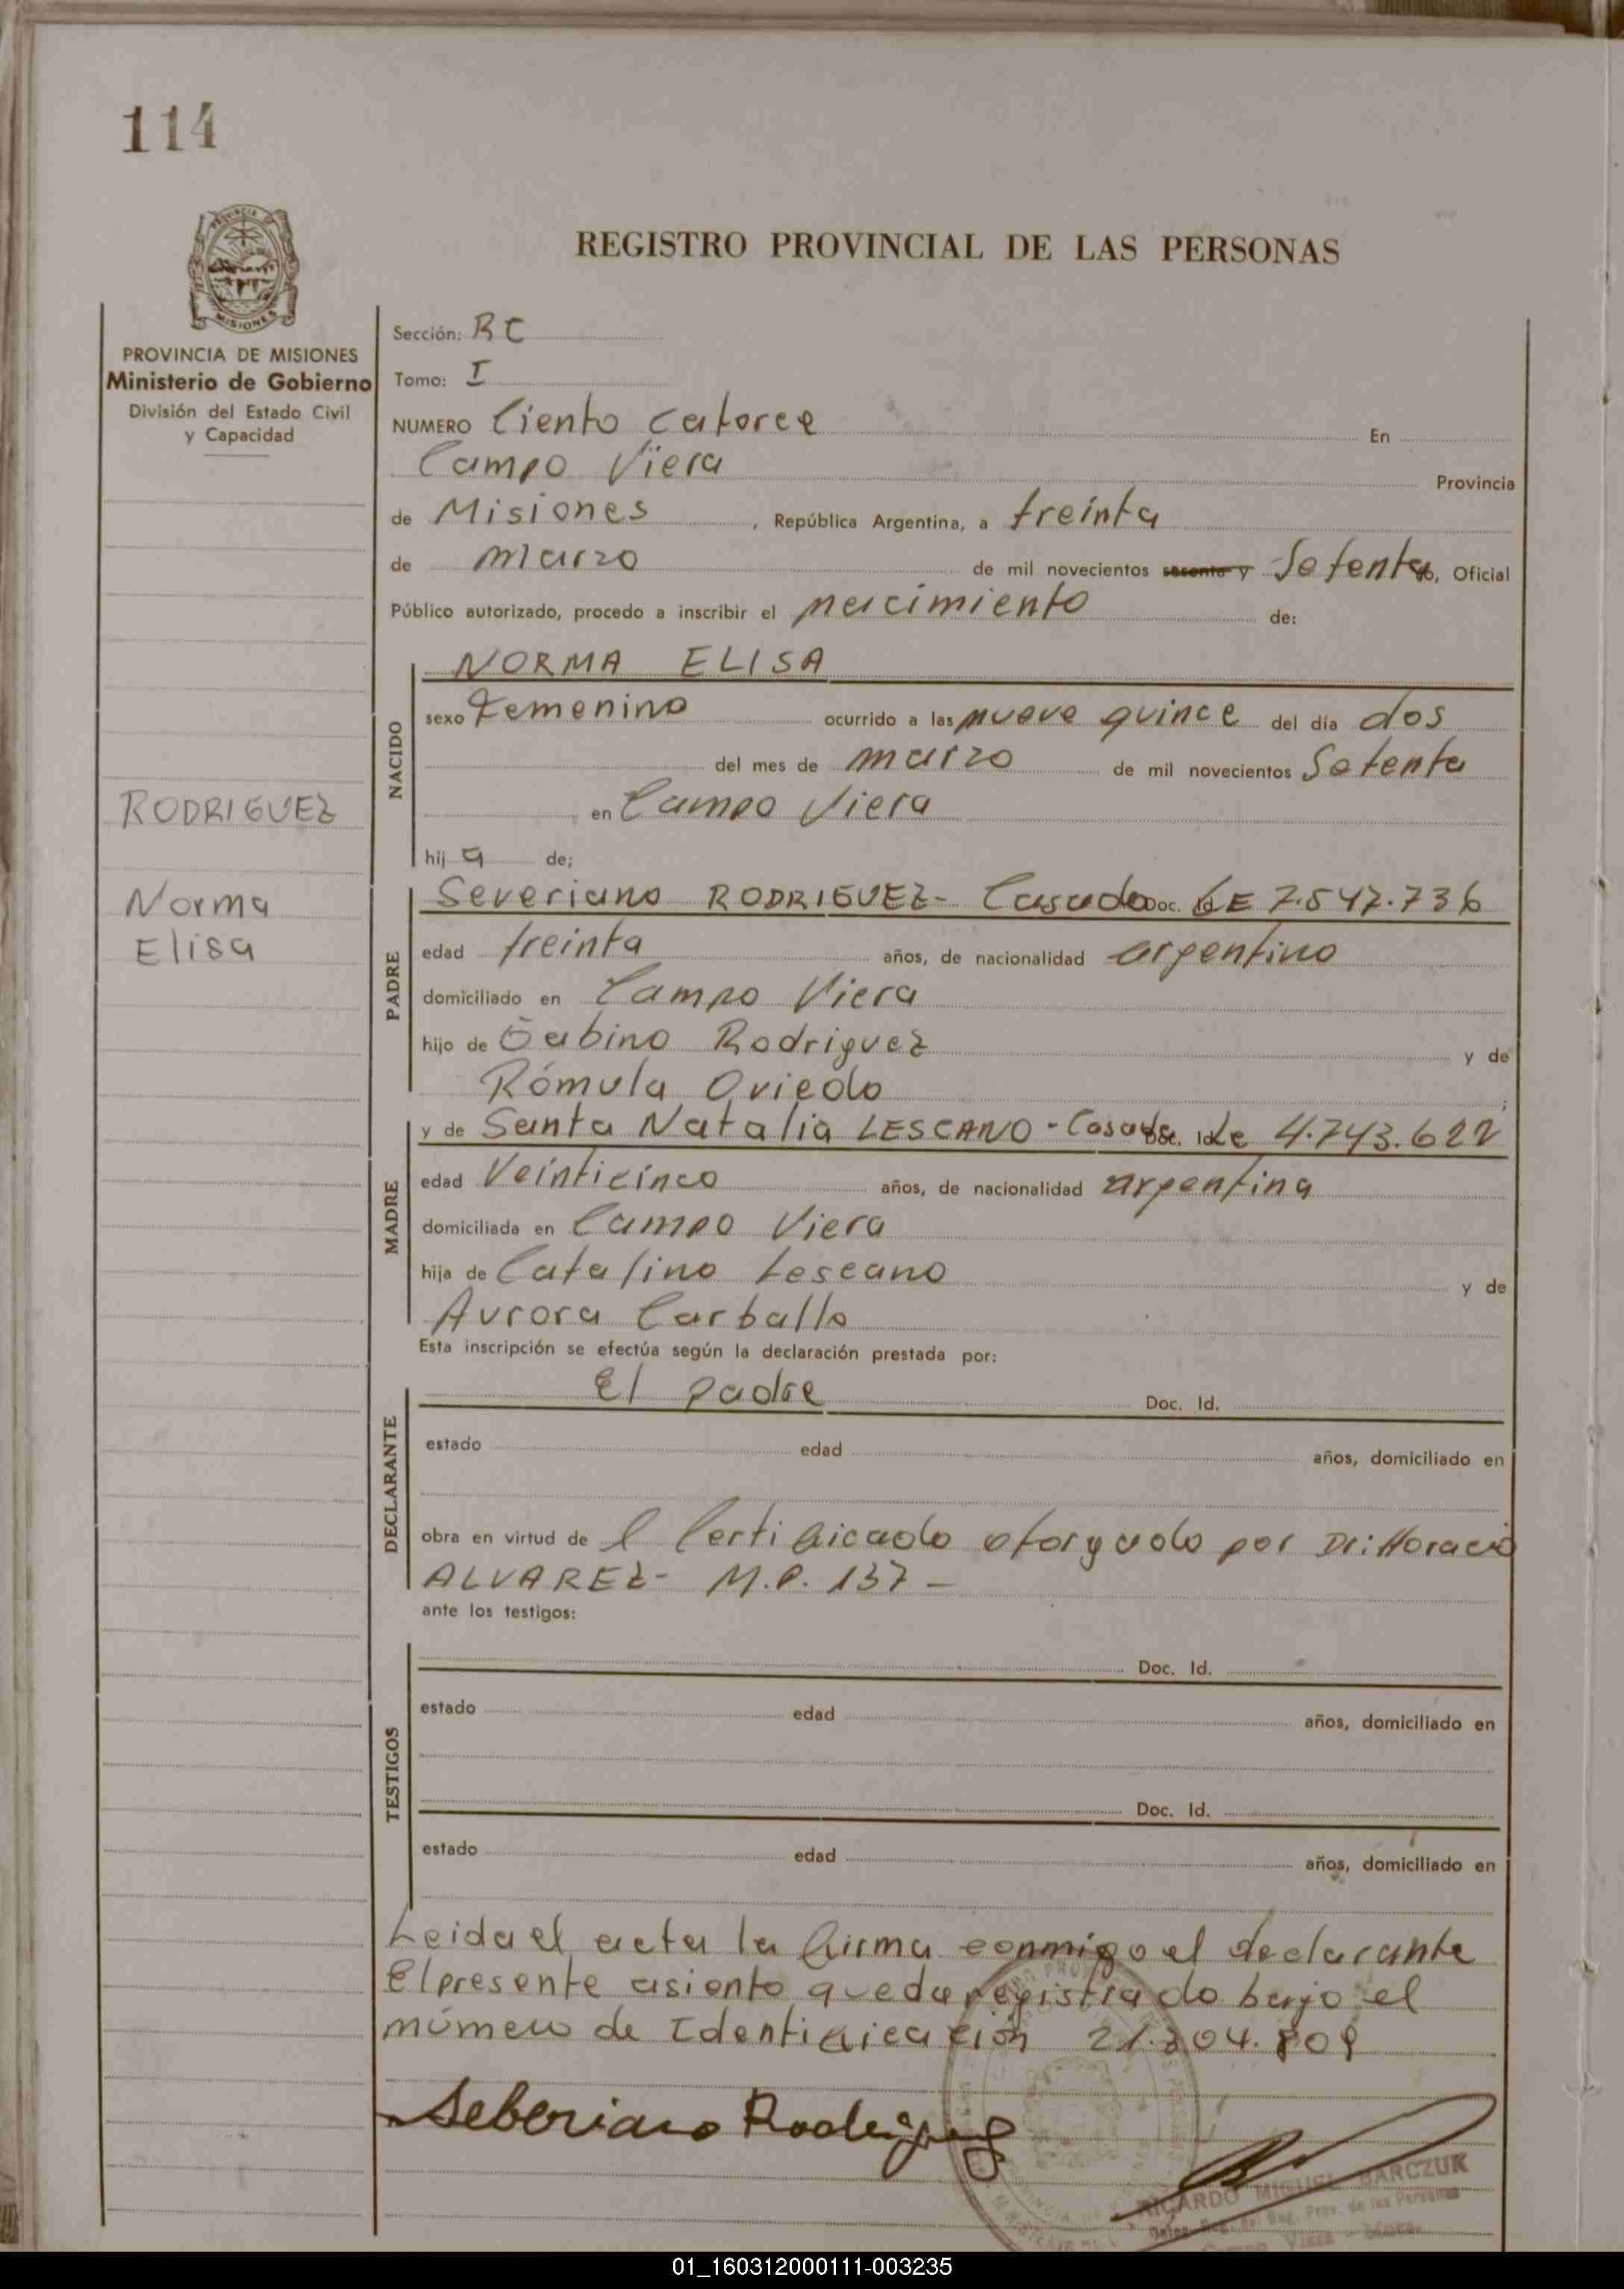 114
REGISTRO PROVINCIAL DE LAS PERSONAS
PROVINCIA DE MISIONES
Ministerio de Gobierno
División del Estado Civil
y Capacidad
RODRIGUEZ
Norma
Elisa
Sección: RC
Tomo: I
NUMERO Ciento catorce En
Campo Viera Provincia
de Misiones, República Argentina, a treinta
de marzo de mil novecientos sesenta y Setenta, Oficial
Público autorizado, procedo a inscribir el nacimiento de:
NACIDO
NORMA ELISA
sexo Femenino ocurrido a las nueve quince del día dos
del mes de marzo de mil novecientos Setenta
en Campo Viera
hija de;
PADRE
Severiano RODRIGUEZ- Casado Doc. LE 7.547.736
edad treinta años, de nacionalidad argentino
domiciliado en Campo Viera
hijo de Gabino Rodriguez y de
Rómula Oviedo;
MADRE
y de Santa Natalia LESCANO - Casada Doc. Id. Le 4.743.622
edad Veinticinco años, de nacionalidad argentina
domiciliada en Campo Viera
hija de Catalino Lescano y de
Aurora Carballo
Esta inscripción se efectúa según la declaración prestada por:
DECLARANTE
El padre Doc. Id.
estado edad años, domiciliado en
obra en virtud de l Certificado otorgado por Dr: Horacio
ALVAREZ- M.P. 137 -
ante los testigos:
TESTIGOS
Doc. Id.
estado edad años, domiciliado en
Doc. Id.
estado edad años, domiciliado en
Leida el acta la firma conmigo el declarante
El presente asiento queda registrado bajo el
número de Identificación
Seberiano Rodriguez
RICARDO MIGUEL BARCZUK
Reg. Prov. de las Personas
Campo Viera - Mnes.
01_160312000111-003235